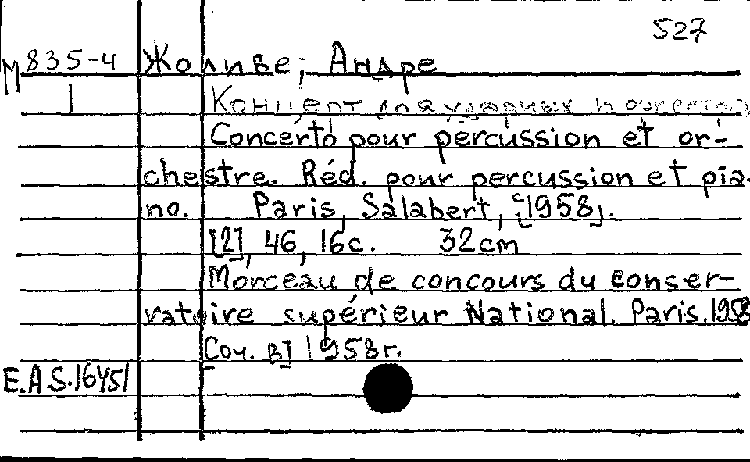 527
М 835-4 Жоливе, Андре
1 Концерт для ударных и оркестра
Concerto pour percussion et or-
chestre. Réd. pour percussion et pia-
no. Paris, Salabert, [1958].
[2], 46, 16с. 32cm
Morceau de concours du conser-
vatoire supérieur National. Paris. 1958
[Соч. в] 1958г.
E.A.S.16451